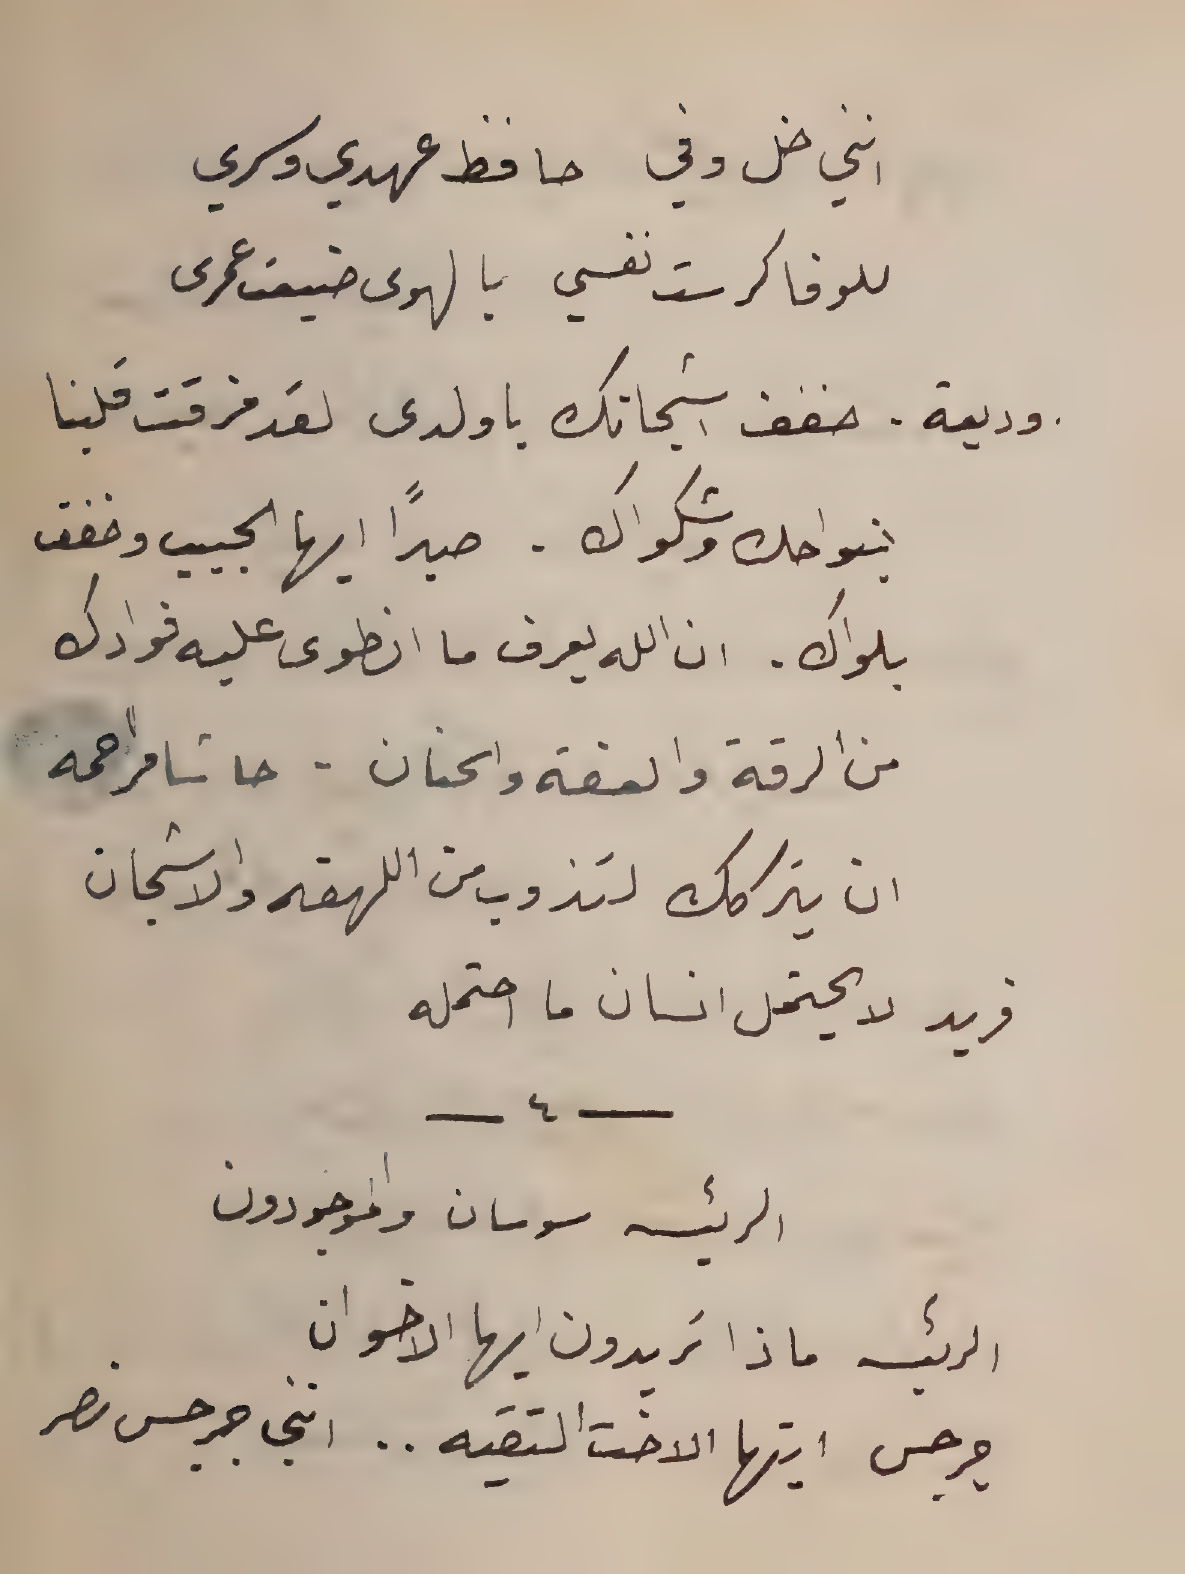 انني خل وفي حافظ عهدي وسري
للوفا كرست نفسي بالهوى ضيعت عمرى
وديعة . خفف اشجانك ياولدى لقد مزقت قلبنا
بنواحك وشكواك . صبرًا ايها الحبيب وخفف
بلواك . ان الله يعرف ما انطوى عليه فوادك
من الرقة والعفة والحنان - حاشا مراحمه
ان يتركك لتذوب من اللهفه والاشجان
فريد لا يحتمل انسان ما احتمله
— ٤ —
الرئيسه سوسان والموجودون
الرئيسه ماذا تريدون ايها الاخوان
جرجس ايتها الاخت التقيه .. انني جرجس نصر